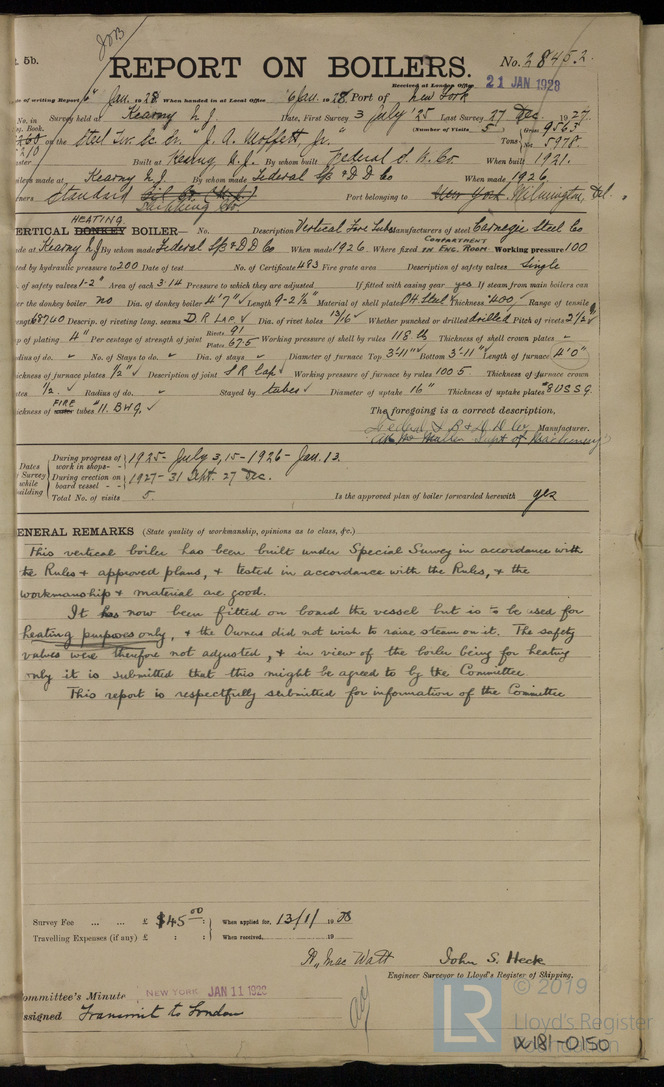 5b.
REPORT ON BOILERS.
No. 28452
Received at London Office
21 JAN 1928
of writing Report 6" Jan. 1928 When handed in at Local Office 6 Jan. 1928. Port of New York
No. in Survey held at Kearny N J. Date, First Survey 3 July '25 Last Survey 27 Dec. 1927.
Book. (Number of Visits 5)
on the Steel Tw. Sc. Sr. "J. A. Moffett Jr." Tons Gross 9565 Net 5978.
Built at Kearny N.J. By whom built Federal S. B. Co. When built 1921.
made at Kearny N.J. By whom made Federal SB & D D Co When made 1926
Standard Oil Co. (N.J.) Port belonging to New York. Wilmington, Del.
HEATING
VERTICAL DONKEY BOILER— No. Description Vertical Fire Tube Manufacturers of steel Carnegie Steel Co
at Kearny N J By whom made Federal SB & D D Co When made 1926. Where fixed COMPARTMENT IN ENG. ROOM Working pressure 100
by hydraulic pressure to 200 Date of test No. of Certificate 483 Fire grate area Description of safety valves Single
of safety valves 1-2" Area of each 3.14 Pressure to which they are adjusted If fitted with easing gear yes If steam from main boilers can
the donkey boiler no Dia. of donkey boiler 4'7" Length 9-2½" Material of shell plates O H Steel Thickness .400 Range of tensile
68740 Descrip. of riveting long. seams D R Lap Dia. of rivet holes 13/16 Whether punched or drilled drilled Pitch of rivets 2½
of plating 4" Per centage of strength of joint Rivets 91 Plates 67.5 Working pressure of shell by rules 118 lb Thickness of shell crown plates "
of do. " No. of Stays to do. " Dia. of stays " Diameter of furnace Top 3'-11" Bottom 3'-11" Length of furnace 4'0"
thickness of furnace plates ½" Description of joint S R Lap Working pressure of furnace by rules 100.5 Thickness of furnace crown
½ Radius of do. " Stayed by tubes Diameter of uptake 16" Thickness of uptake plates #8 U S S G.
thickness of FIRE water tubes #11. BWG.
The foregoing is a correct description,
Manufacturer.
Dates of Survey while building
During progress of work in shops - - 1925 - July 3, 15 - 1926 - Jan. 13.
During erection on board vessel - - 1927 - 31 Sept. 27 Dec.
Total No. of visits 5. Is the approved plan of boiler forwarded herewith yes
GENERAL REMARKS (State quality of workmanship, opinions as to class, &c.)
This vertical boiler has been built under Special Survey in accordance with
the Rules & approved plans, & tested in accordance with the Rules, & the
workmanship & material are good.
It has now been fitted on board the vessel but is to be used for
heating purposes only, & the Owners did not wish to raise steam on it. The safety
valves were therefore not adjusted, & in view of the boiler being for heating
only it is submitted that this might be agreed to by the Committee.
This report is respectfully submitted for information of the Committee
Survey Fee ... ... £ $45.00 When applied for, 13/1/1928
Travelling Expenses (if any) £ : : When received, 19
Mac Watt John S. Heck
Engineer Surveyor to Lloyd's Register of Shipping.
Committee's Minute NEW YORK JAN 11 1928
Assigned Transmit to London
LR
© 2019
Lloyd's Register
Foundation
IX181-0150